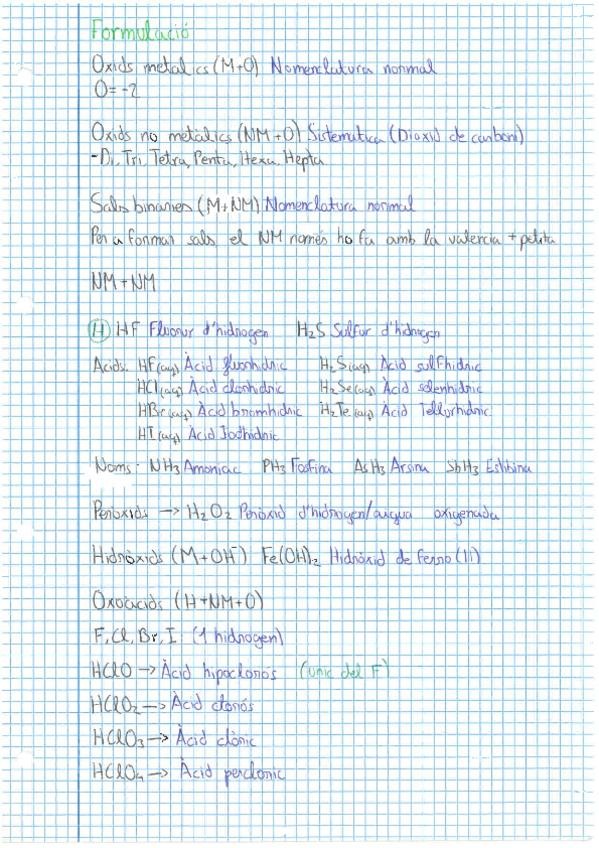 Formulació
Oxids metal.ics (M+O) Nomenclatura normal
O=-2
Oxids no metàlics (NM+O) Sistematica (Dioxid de carboni)
-Di, Tri, Tetra, Penta, Hexa, Hepta
Sals binaries (M+NM) Nomenclatura normal
Per a formar sals el NM només ho fa amb la valencia + petita
NM+NM
(H) HF Fluorur d'hidrogen H₂S Sulfur d'hidrogen
Acids: HF(aq) Àcid fluorhidric H₂S(aq) Àcid sulfhidric
HCl(aq) Àcid clorhidric H₂Se(aq) Àcid selenhidric
HBr(aq) Àcid bromhidric H₂Te(aq) Àcid Telurhidric
HI(aq) Àcid Iodhidric
Noms: NH₃ Amoniac PH₃ Fosfina AsH₃ Arsina SbH₃ Estibina
Peroxids → H₂O₂ Peròxid d'hidrogen/aigua oxigenada
Hidròxids (M+OH⁻) Fe(OH)₂ Hidròxid de ferro (II)
Oxoacids (H+NM+O)
F, Cl, Br, I: (1 hidrogen)
HClO → Àcid hipoclorós (unic del F)
HClO₂ → Àcid clorós
HClO₃ → Àcid clòric
HClO₄ → Àcid percloric